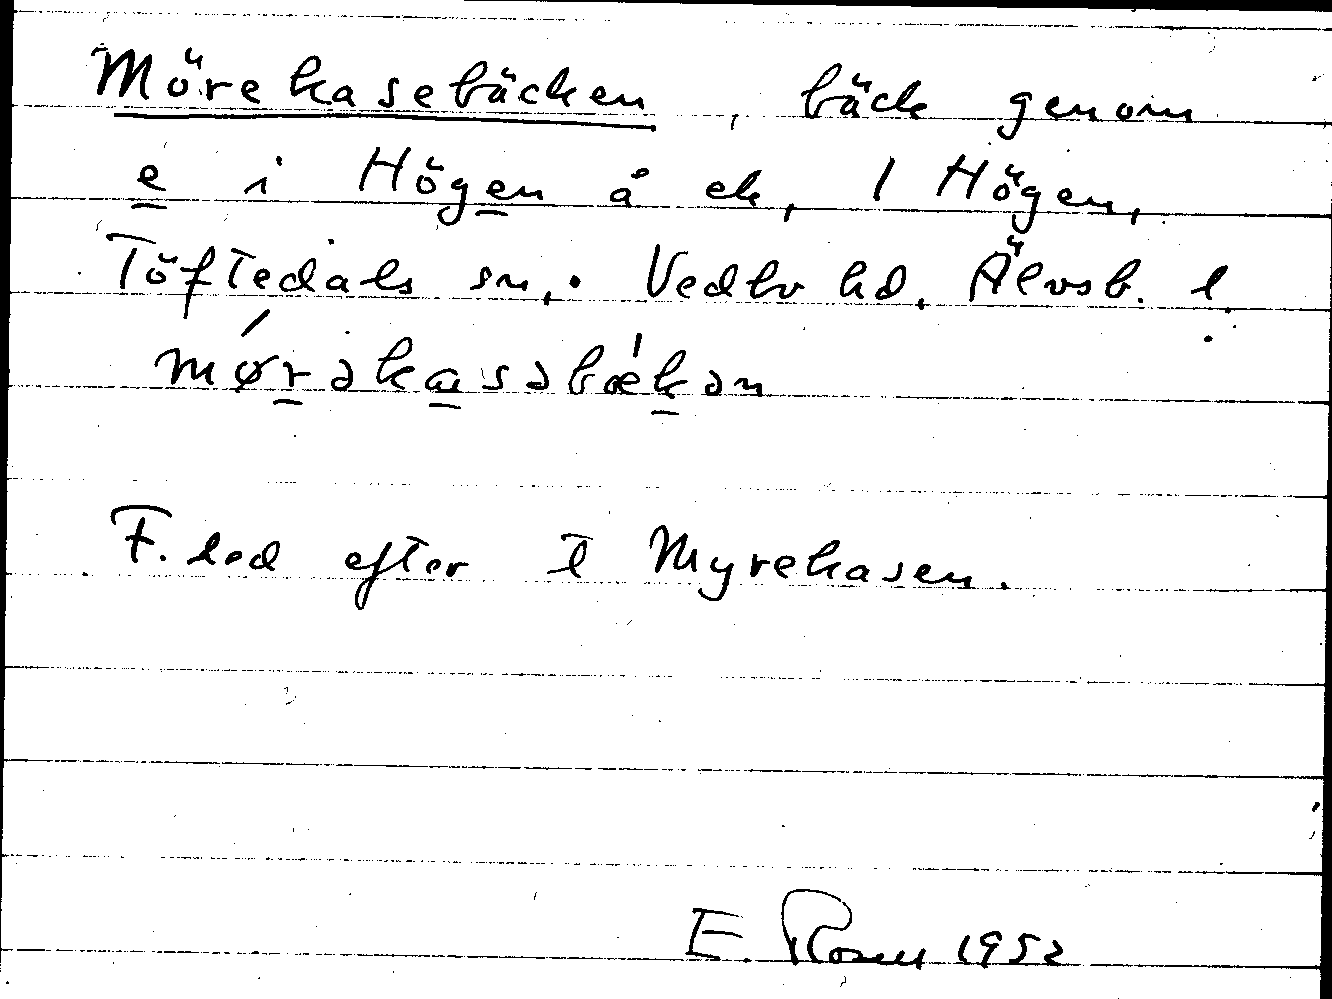 Mörekasebäcken, bäck genom
e i Högen å ek, 1 Högen,
Töftedals sn, Vedbo hd. Älvsb. l.
mørəkasəbækən
F. led efter t Myrekasen.
E. Rosen 1952